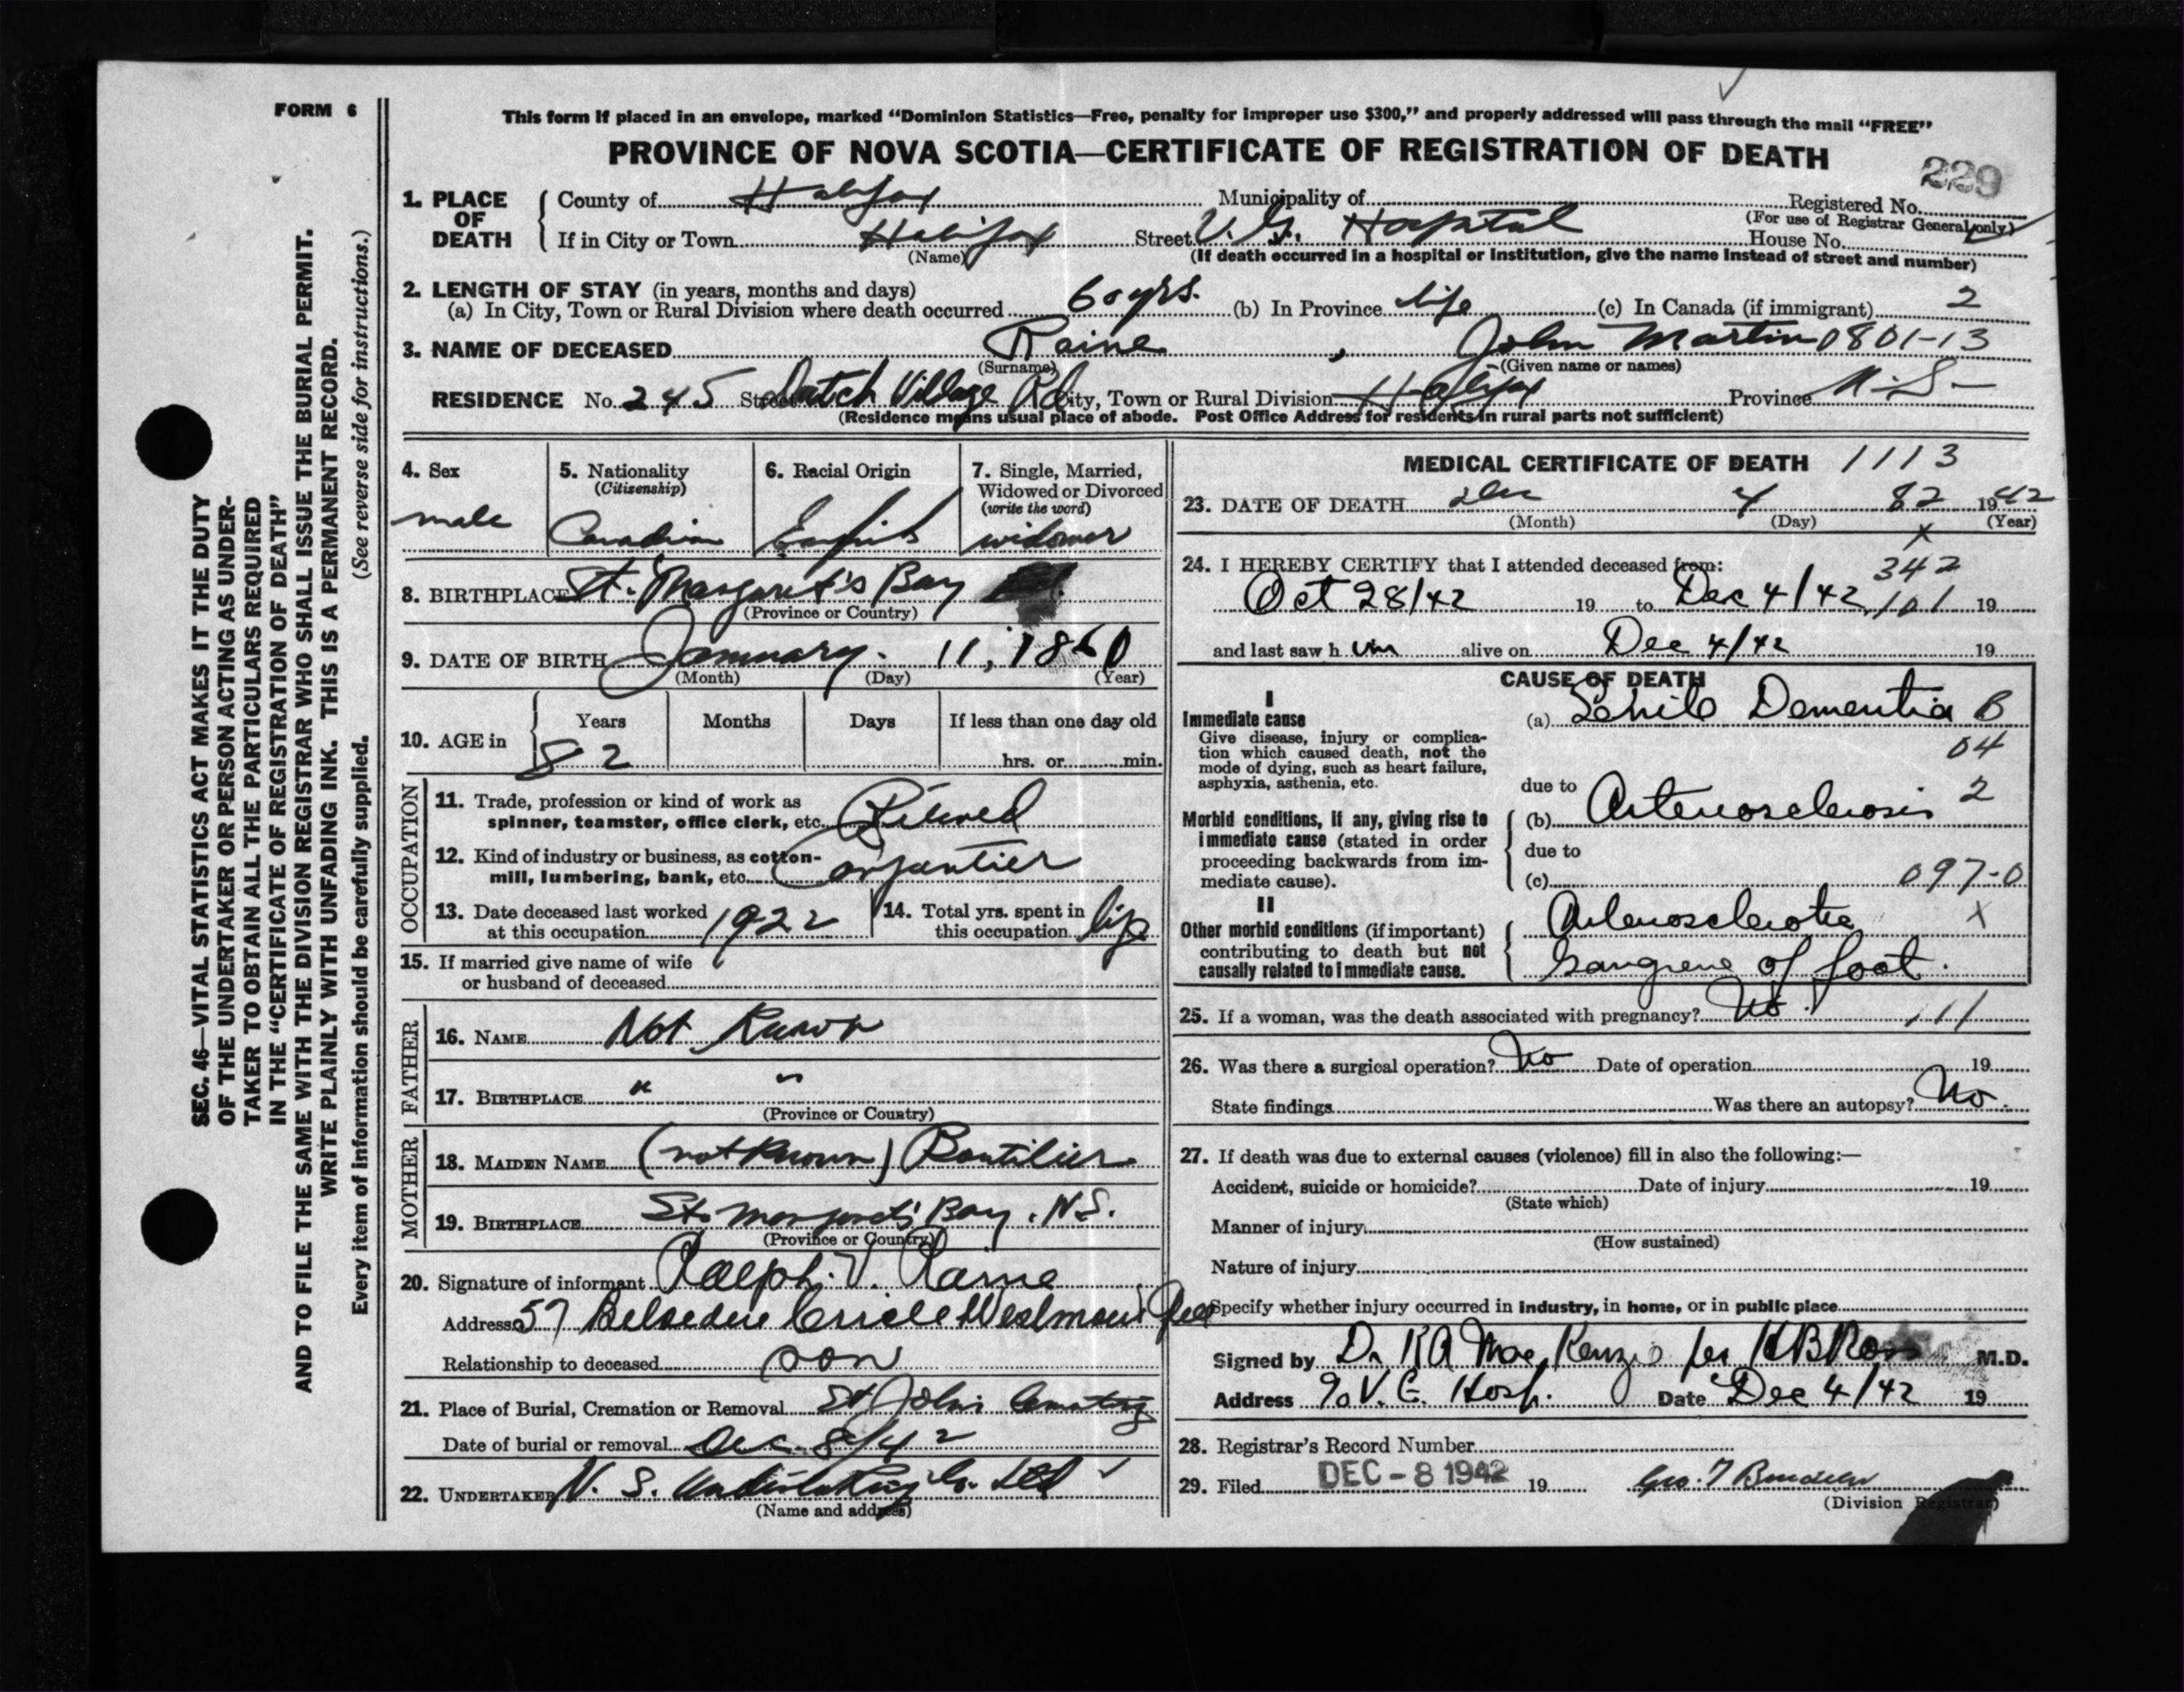 FORM 6
SEC. 46—VITAL STATISTICS ACT MAKES IT THE DUTY
OF THE UNDERTAKER OR PERSON ACTING AS UNDER-
TAKER TO OBTAIN ALL THE PARTICULARS REQUIRED
IN THE "CERTIFICATE OF REGISTRATION OF DEATH"
AND TO FILE THE SAME WITH THE DIVISION REGISTRAR WHO SHALL ISSUE THE BURIAL PERMIT.
WRITE PLAINLY WITH UNFADING INK. THIS IS A PERMANENT RECORD.
Every item of information should be carefully supplied. (See reverse side for instructions.)
This form if placed in an envelope, marked "Dominion Statistics—Free, penalty for improper use $300," and properly addressed will pass through the mail "FREE"
PROVINCE OF NOVA SCOTIA—CERTIFICATE OF REGISTRATION OF DEATH
229
1. PLACE OF DEATH
County of Halifax Municipality of Registered No.
(For use of Registrar General only)
If in City or Town Halifax Street V. G. Hospital House No.
(Name) (If death occurred in a hospital or institution, give the name instead of street and number)
2. LENGTH OF STAY (in years, months and days)
(a) In City, Town or Rural Division where death occurred 60 yrs. (b) In Province life (c) In Canada (if immigrant) 2
3. NAME OF DECEASED Raine, John Martin 0801-13
(Surname) (Given name or names)
RESIDENCE No. 245 Street Dutch Village Rd City, Town or Rural Division Halifax Province N.S.
(Residence means usual place of abode. Post Office Address for residents in rural parts not sufficient)
4. Sex male
5. Nationality (Citizenship) Canadian
6. Racial Origin English
7. Single, Married, Widowed or Divorced (write the word) widower
8. BIRTHPLACE St. Margaret's Bay
(Province or Country)
9. DATE OF BIRTH January. 11, 1860
(Month) (Day) (Year)
10. AGE in Years Months Days If less than one day old
82 hrs. or min.
OCCUPATION
11. Trade, profession or kind of work as
spinner, teamster, office clerk, etc. Retired
12. Kind of industry or business, as cotton-
mill, lumbering, bank, etc. Carpantier
13. Date deceased last worked
at this occupation 1922
14. Total yrs. spent in
this occupation life
15. If married give name of wife
or husband of deceased
FATHER
16. NAME Not Known
17. BIRTHPLACE " "
(Province or Country)
MOTHER
18. MAIDEN NAME (not known) Boutilier
19. BIRTHPLACE St. Margarets' Bay, N.S.
(Province or Country)
20. Signature of informant Ralph. V. Raine
Address 57 Belvedere Circle Westmount Que
Relationship to deceased son
21. Place of Burial, Cremation or Removal St John's Cemetery
Date of burial or removal Dec. 8/42
22. UNDERTAKER N. S. Undertaking Co. Ltd
(Name and address)
MEDICAL CERTIFICATE OF DEATH 1113
23. DATE OF DEATH Dec 4 82 1942
(Month) (Day) (Year)
x
24. I HEREBY CERTIFY that I attended deceased from: 342
Oct 28/42 19 to Dec 4/42 101 19
and last saw h im alive on Dec 4/42 19
CAUSE OF DEATH
I
Immediate cause
Give disease, injury or complica-
tion which caused death, not the
mode of dying, such as heart failure,
asphyxia, asthenia, etc.
(a) Senile Dementia B
04
due to
2
Morbid conditions, if any, giving rise to
immediate cause (stated in order
proceeding backwards from im-
mediate cause).
(b) Arteriosclerosis
due to
(c) 097-0
II
Other morbid conditions (if important)
contributing to death but not
causally related to immediate cause.
Arteriosclerotic x
Gangrene of foot.
25. If a woman, was the death associated with pregnancy? No 111
26. Was there a surgical operation? No Date of operation 19
State findings Was there an autopsy? No.
27. If death was due to external causes (violence) fill in also the following:—
Accident, suicide or homicide? Date of injury 19
(State which)
Manner of injury
(How sustained)
Nature of injury
Specify whether injury occurred in industry, in home, or in public place
Signed by Dr KA MacKenzie per HB Ross M.D.
Address % V. G. Hosp. Date Dec 4/42 19
28. Registrar's Record Number
29. Filed DEC -8 1942 19 Geo. T
(Division Registrar)